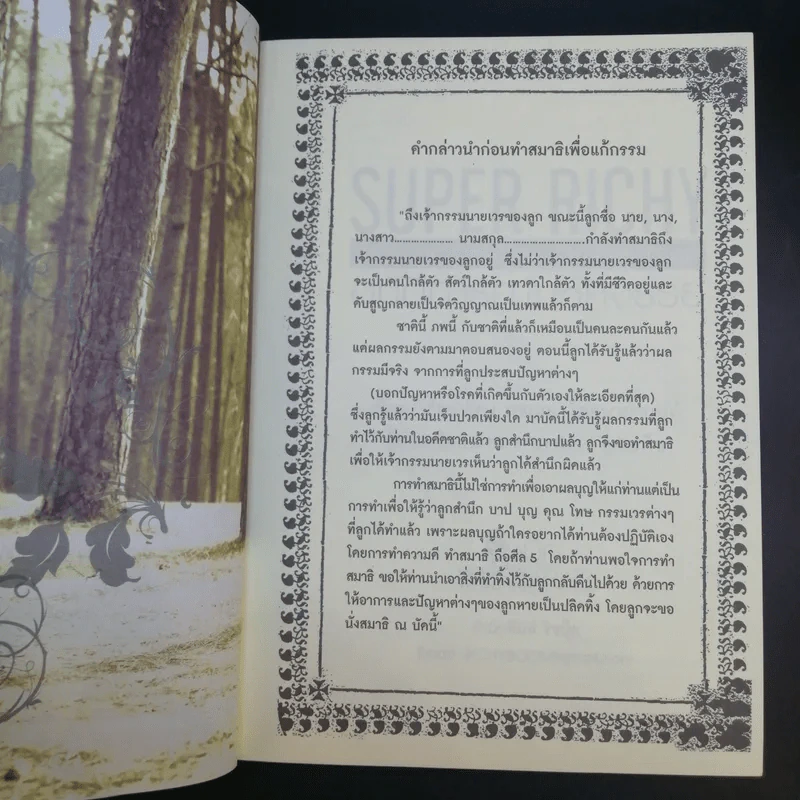 คำกล่าวนำก่อนทำสมาธิเพื่อแก้กรรม
"ถึงเจ้ากรรมนายเวรของลูก ขณะนี้ลูกชื่อ นาย, นาง,
นางสาว..................... นามสกุล.............................กำลังทำสมาธิถึง
เจ้ากรรมนายเวรของลูกอยู่ ซึ่งไม่ว่าเจ้ากรรมนายเวรของลูก
จะเป็นคนใกล้ตัว สัตว์ใกล้ตัว เทวดาใกล้ตัว ทั้งที่มีชีวิตอยู่และ
ดับสูญกลายเป็นจิตวิญญาณเป็นเทพแล้วก็ตาม
ชาตินี้ ภพนี้ กับชาติที่แล้วก็เหมือนเป็นคนละคนกันแล้ว
แต่ผลกรรมยังตามมาตอบสนองอยู่ ตอนนี้ลูกได้รับรู้แล้วว่าผล
กรรมมีจริง จากการที่ลูกประสบปัญหาต่างๆ
(บอกปัญหาหรือโรคที่เกิดขึ้นกับตัวเองให้ละเอียดที่สุด)
ซึ่งลูกรู้แล้วว่ามันเจ็บปวดเพียงใด มาบัดนี้ได้รับรู้ผลกรรมที่ลูก
ทำไว้กับท่านในอดีตชาติแล้ว ลูกสำนึกบาปแล้ว ลูกจึงขอทำสมาธิ
เพื่อให้เจ้ากรรมนายเวรเห็นว่าลูกได้สำนึกผิดแล้ว
การทำสมาธินี้ไม่ใช่การทำเพื่อเอาผลบุญให้แก่ท่านแต่เป็น
การทำเพื่อให้รู้ว่าลูกสำนึก บาป บุญ คุณ โทษ กรรมเวรต่างๆ
ที่ลูกได้ทำแล้ว เพราะผลบุญถ้าใครอยากได้ท่านต้องปฏิบัติเอง
โดยการทำความดี ทำสมาธิ ถือศีล 5 โดยถ้าท่านพอใจการทำ
สมาธิ ขอให้ท่านนำเอาสิ่งที่ทำทิ้งไว้กับลูกกลับคืนไปด้วย ด้วยการ
ให้อาการและปัญหาต่างๆของลูกหายเป็นปลิดทิ้ง โดยลูกจะขอ
นั่งสมาธิ ณ บัดนี้"